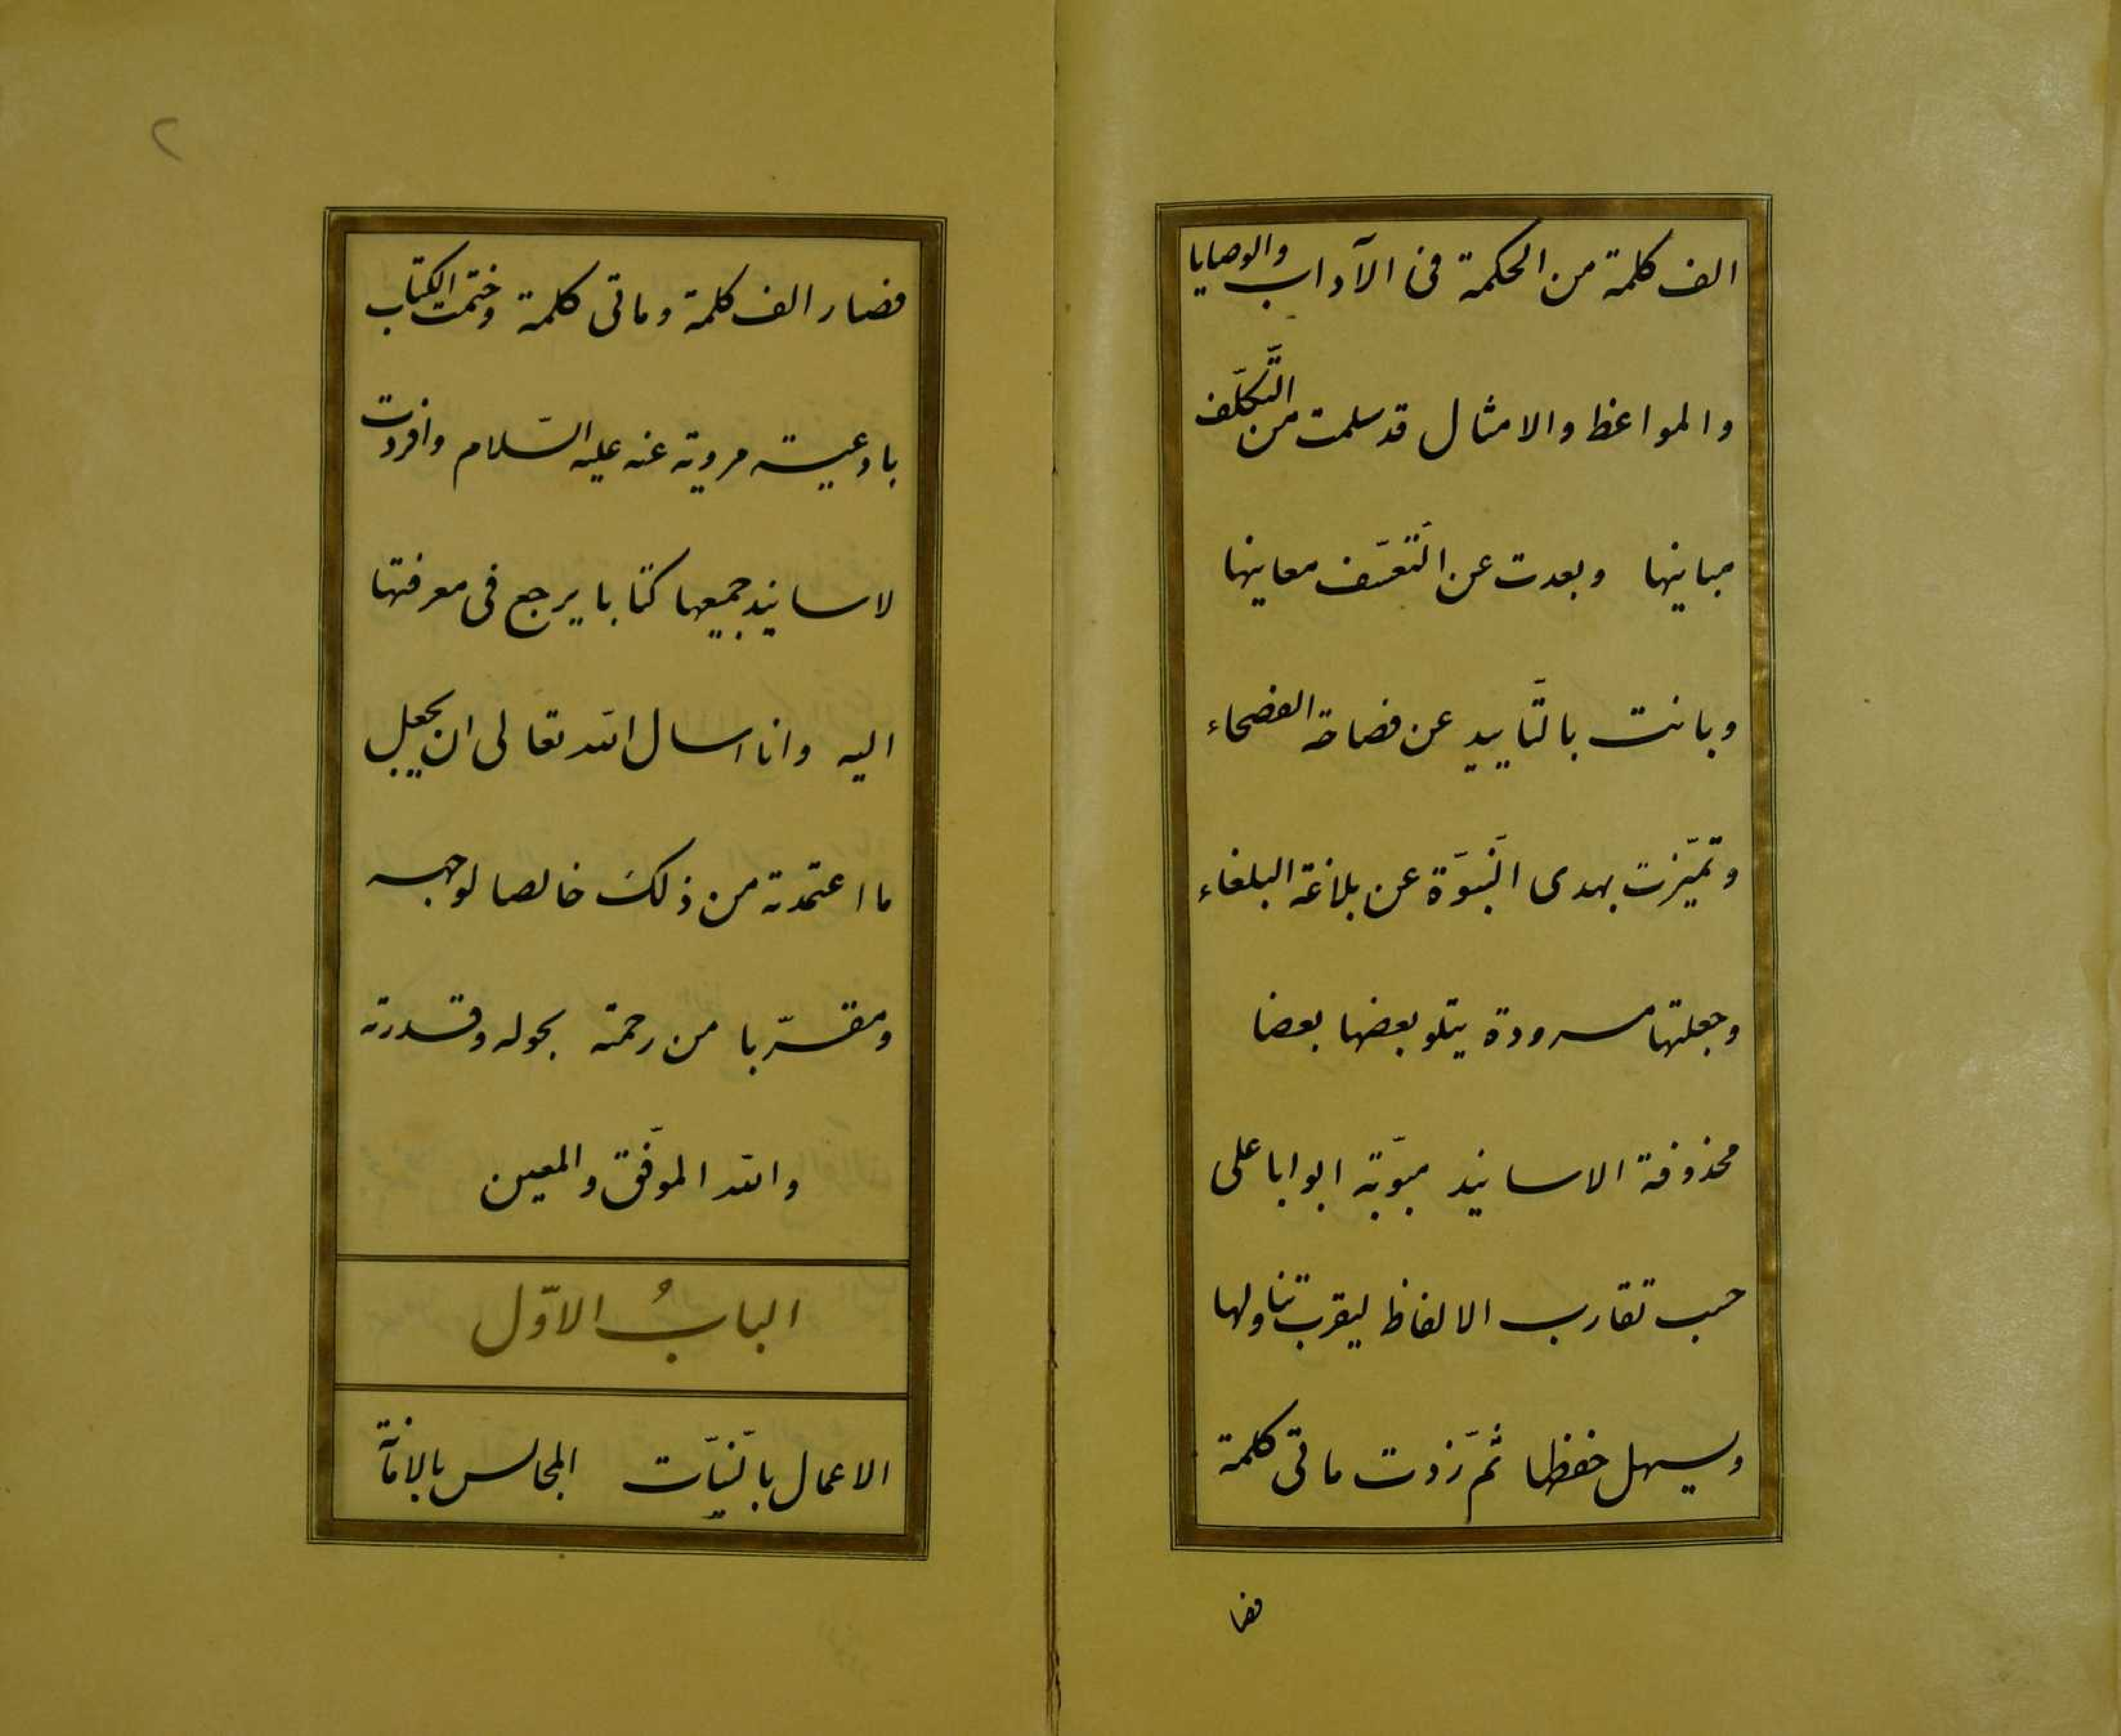 الف كلمة من الحكمة فى الآداب والوصايا
والمواعظ والامثال قد سلمت من التَّكلّف
مبانيها وبعدت عن التَّعسّف معانيها
وبانت بالتَّاييد عن فصاحة الفصحاء
وتميّزت بهدى النَّبوّة عن بلاغة البلغاء
وجعلتها مسرودة يتلو بعضها بعضا
محذوفة الاسانيد مبوّبة ابوابا على
حسب تقارب الالفاظ ليقرب تناولها
ويسهل حفظها ثمّ زدت مائتى كلمة
فصا
٢
فصار الف كلمة ومائتى كلمة وختمت الكتاب
بادعية مروية عنه عليه السّلام وافردت
لاسانيد جميعها كتابا يرجع فى معرفتها
اليه وانا اسال الله تعالى ان يجعل
ما اعتمدته من ذلك خالصا لوجهه
ومقرّبا من رحمته بحوله وقدرته
والله الموفّق والمعين
البابُ الاوّل
الاعمال بالنّيّات المجالس بالامانة